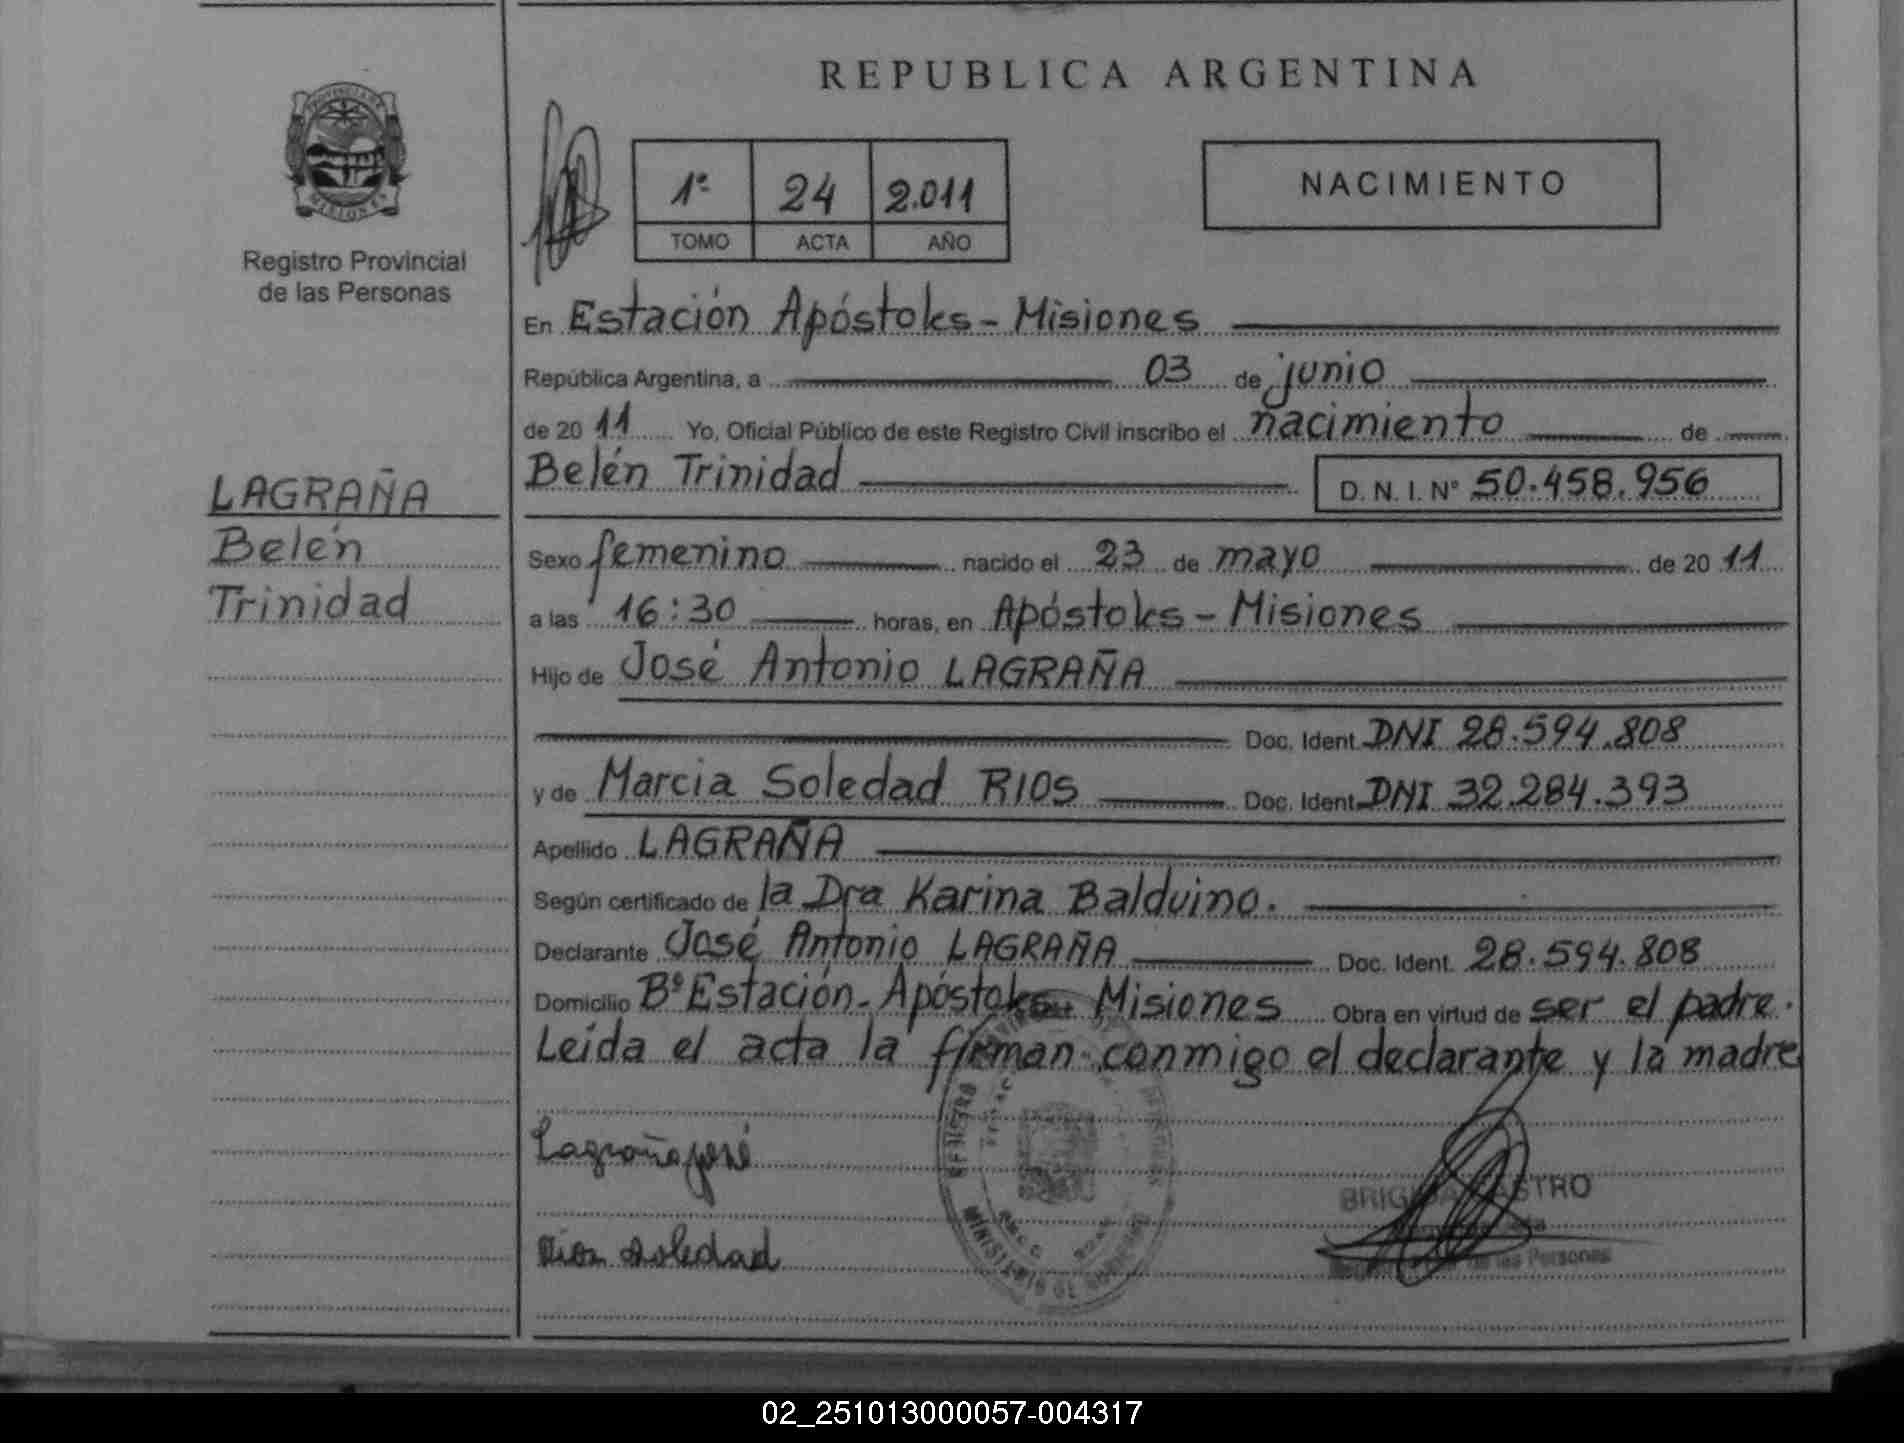 REPUBLICA ARGENTINA
PROVINCIA DE
MISIONES
Registro Provincial
de las Personas
1º 24 2.011
TOMO ACTA AÑO
NACIMIENTO
En Estación Apóstoles - Misiones
República Argentina, a 03 de junio
de 20 11 Yo, Oficial Público de este Registro Civil inscribo el nacimiento de
Belén Trinidad D. N. I. Nº 50.458.956
LAGRAÑA
Belén
Trinidad
Sexo femenino nacido el 23 de mayo de 20 11
a las 16:30 horas, en Apóstoles - Misiones
Hijo de José Antonio LAGRAÑA
Doc. Ident. DNI 28.594.808
y de Marcia Soledad RIOS Doc. Ident. DNI 32.284.393
Apellido LAGRAÑA
Según certificado de la Dra Karina Balduino.
Declarante José Antonio LAGRAÑA Doc. Ident. 28.594.808
Domicilio Bº Estación - Apóstoles - Misiones Obra en virtud de ser el padre.
Leída el acta la firman conmigo el declarante y la madre
Lagraña José
Rios Soledad
REGISTRO
MINISTERIO DE GOBIERNO
BRIGIDA CASTRO
de las Personas
02_251013000057-004317